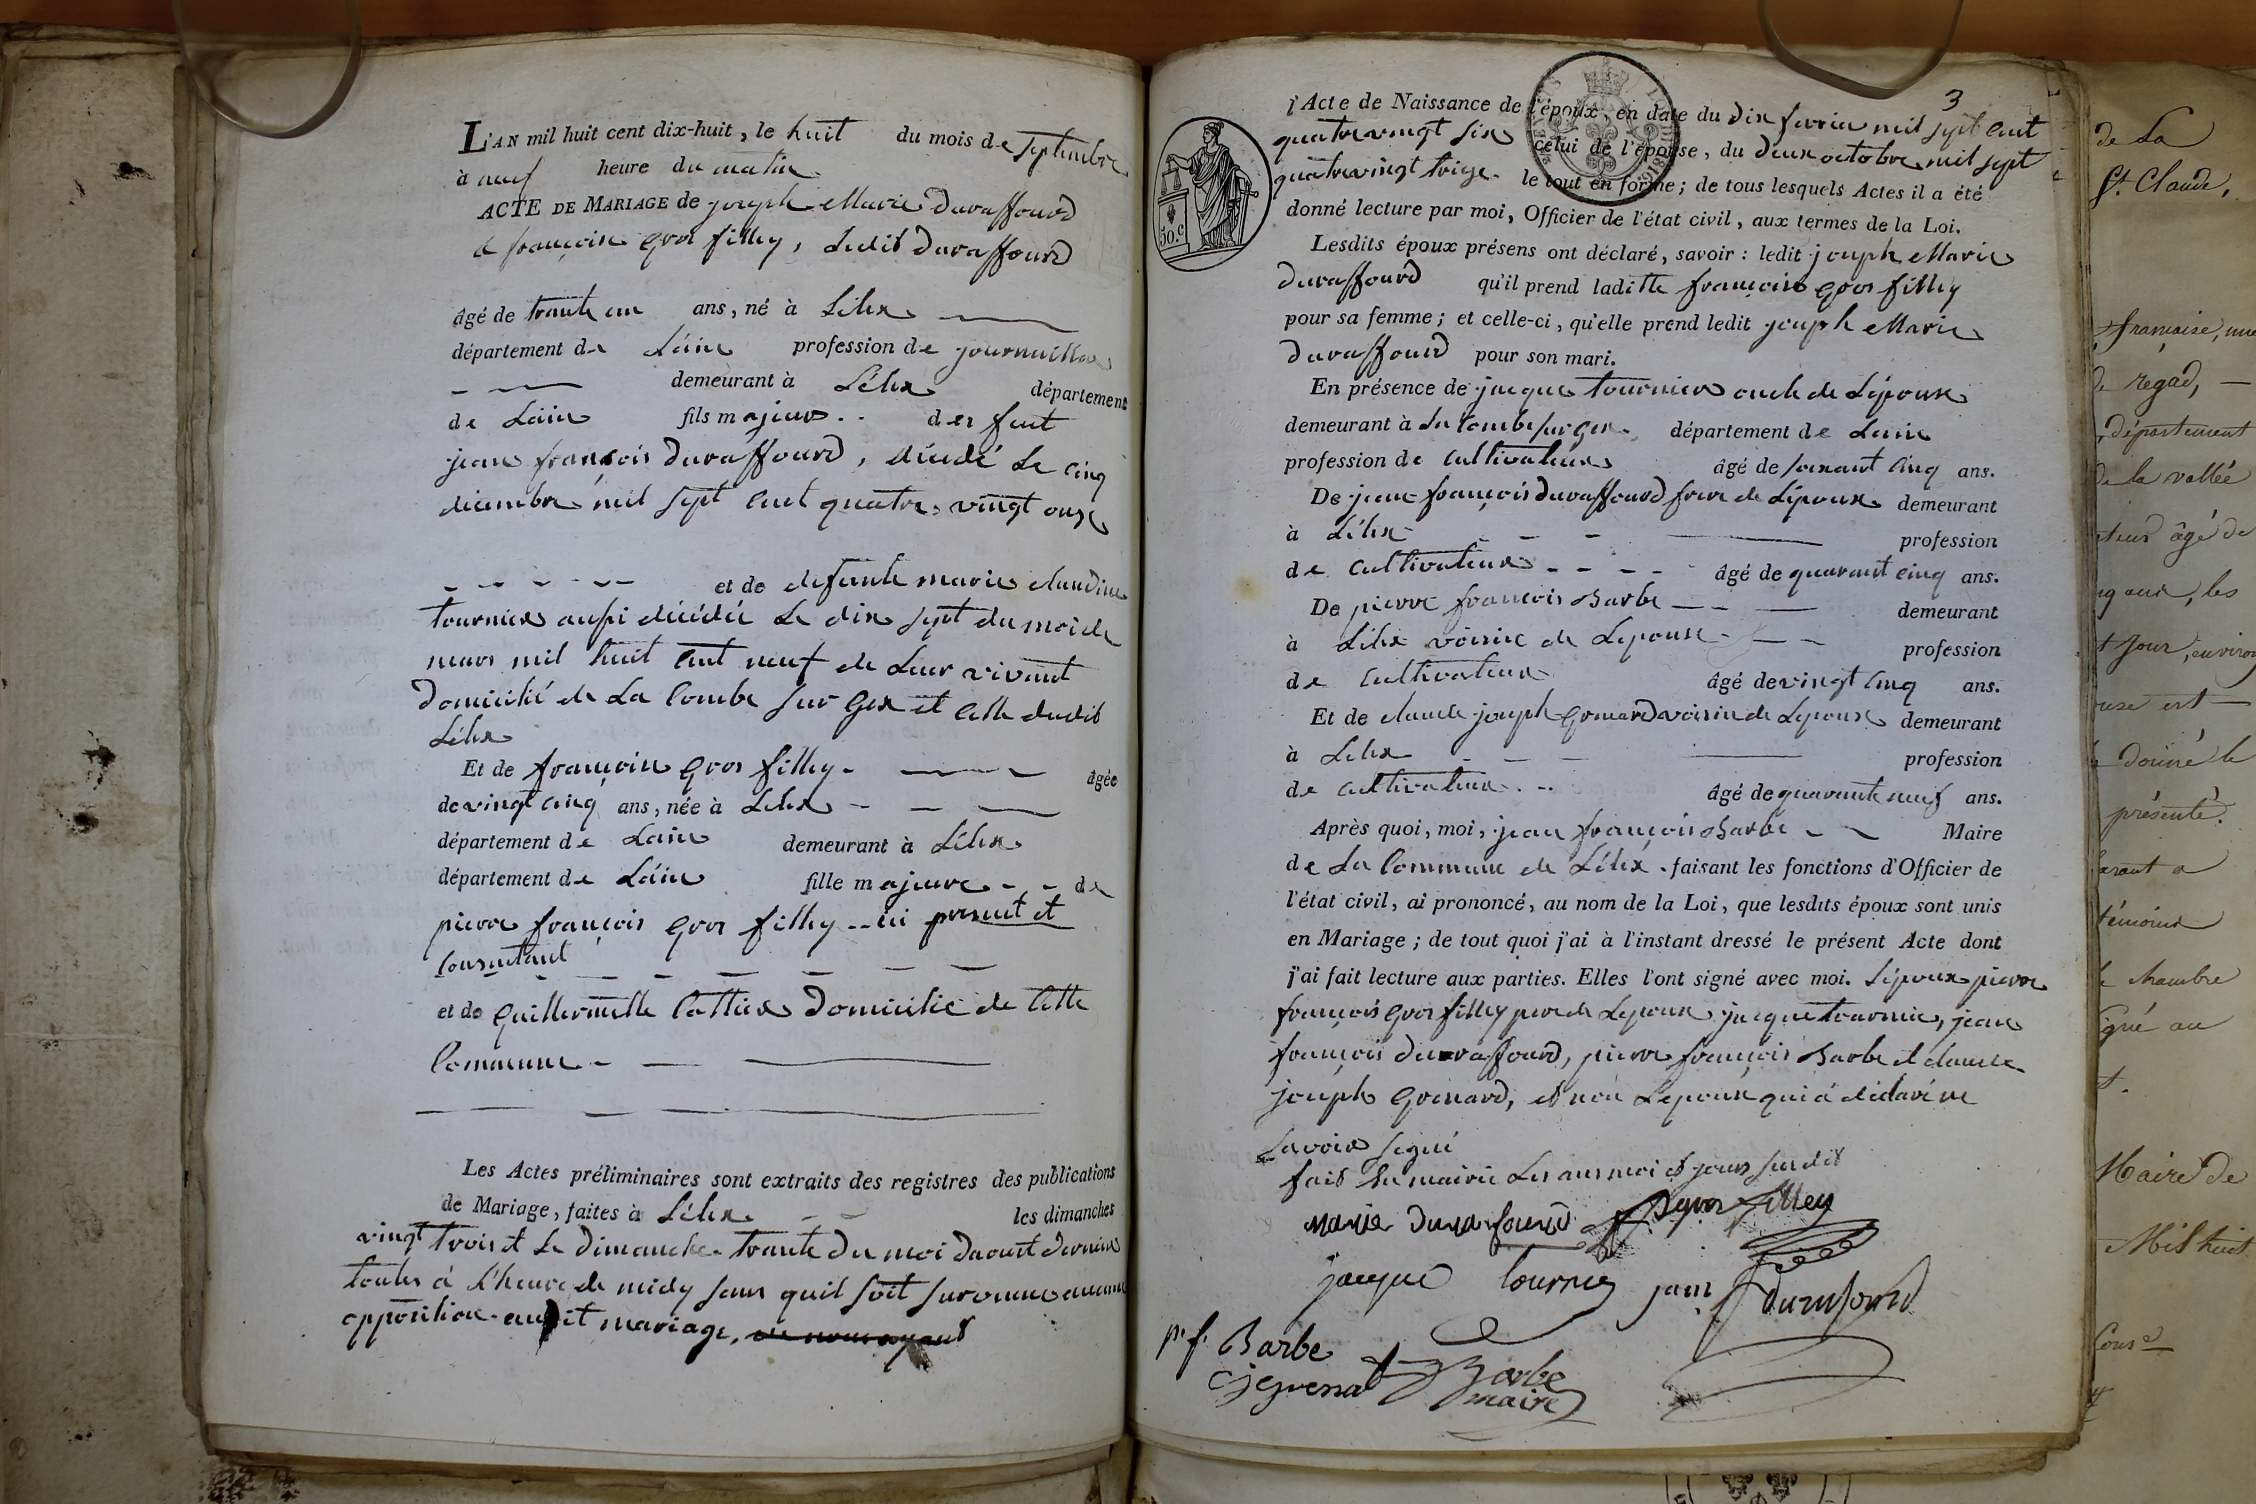 L'AN mil huit cent dix-huit, le huit du mois de Septembre
à neuf heure du matin
ACTE DE MARIAGE de joseph Marie Duraffourd
& françoise gros filley, Ledit Duraffourd
âgé de trante un ans, né à Lélex
département de Láin profession de journaillier
demeurant à Lélex département
de Lain fils majeur .. des feut
jean françois Duraffourd, décédé Le cinq
décembre mil sept cent quatre vingt onze
et de defunte marie claudine
tournier aussi décédée Le dix sept du moi de
mars mil huit cent neuf de Leur vivant
Domicilié de La Combe sur Gex et celle dudit
Lélex
Et de françoise gros filley - âgée
de vingt cinq ans, née à Lélex
département de Lain demeurant à Lélex
département de Láin fille majeure - - de
pierre françois gros filley -- ici present et
consentant
et de guillermette Domicilié de cette
Commune -
Les Actes préliminaires sont extraits des registres des publications
de Mariage, faites à Lélex les dimanches
vingt trois et Le Dimanche trante Du moi Daoust Dernier
toutes á l'heure de midy sans quil soit survenue aucune
opposition audit mariage,
3
l'Acte de Naissance de l'époux, en date du dix fevrier mil sept cent
quatre vingt six celui de l'épouse, du deux octobre mil sept
quatrevingt treize. le tout en forme; de tous lesquels Actes il a été
donné lecture par moi, Officier de l'état civil, aux termes de la Loi.
50.c
Lesdits époux présens ont déclaré, savoir: ledit joseph Marie
Duraffourd qu'il prend laditte françoise gros filley
pour sa femme; et celle-ci, qu'elle prend ledit joseph Marie
Duraffourd pour son mari.
En présence de jacque tournier oncle de Lépoux
demeurant à La Combe sur Gex. département de Lain
profession de cultivateur âgé de soixant cinq ans.
De jean françois Duraffourd frere de Lépoux demeurant
à Lélex profession
de cultivateur âgé de quarant cinq ans.
De pierre françois Barbe demeurant
à Lélex voisin de Lepouse profession
de cultivateur âgé de vingt cinq ans.
Et de claude joseph grenard voisin de Lepouse demeurant
à Lelex profession
de cultivateur . -- âgé de quarante neuf ans.
Après quoi, moi, jean françois Barbe Maire
de La Commune de Lélex . faisant les fonctions d'Officier de
l'état civil, ai prononcé, au nom de la Loi, que lesdits époux sont unis
en Mariage; de tout quoi j'ai à l'instant dressé le présent Acte dont
j'ai fait lecture aux parties. Elles l'ont signé avec moi. Lépoux pierre
françois gros filley pere de Lepouse jacque tournier, jean
françois duraffourd, pierre françois Barbe et claude
joseph grenard, et non Lépouse qui á déclaré ne
savoir signé
fait En mairie Les ans moi et jour susdit
marie Duraffourd gros filley
jacque tournier jean f duraffourd
p.f. Barbe
Barbe
maire
de La
St. Claude,
française, une
de regad, —
département
de la vallée
teur âgé de
ans, les
jour, environ
est —
donné le
présenté.
témoins
chambre
signé au
Maire de
Mil huit